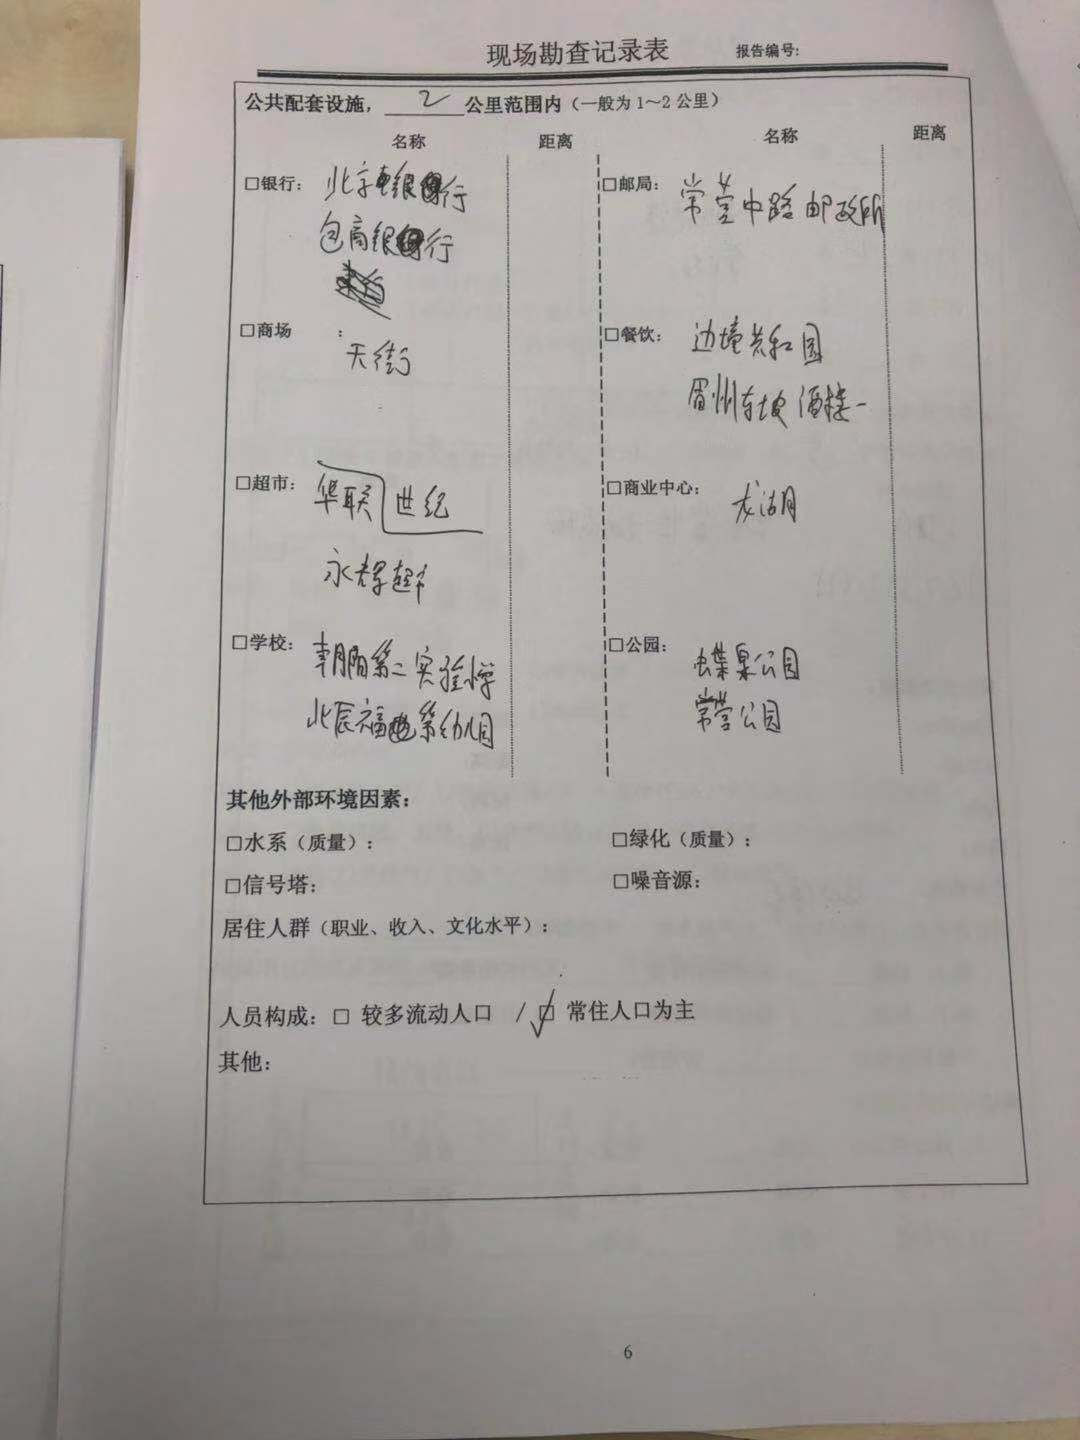 现场勘查记录表 报告编号:
公共配套设施，2公里范围内（一般为1～2公里）
名称 距离 名称 距离
□银行： 北京银行
包商银行
□邮局： 常营中路邮政所
□商场 ：
天街
□餐饮： 边境共和国
眉州东坡酒楼
□超市： 华联 世纪
永辉超市
□商业中心：
□学校： 朝阳第二实验小学
北辰福第幼儿园
□公园： 公园
常营公园
其他外部环境因素：
□水系（质量）： □绿化（质量）：
□信号塔： □噪音源：
居住人群（职业、收入、文化水平）：
人员构成：□ 较多流动人口 /☑ 常住人口为主
其他：
6